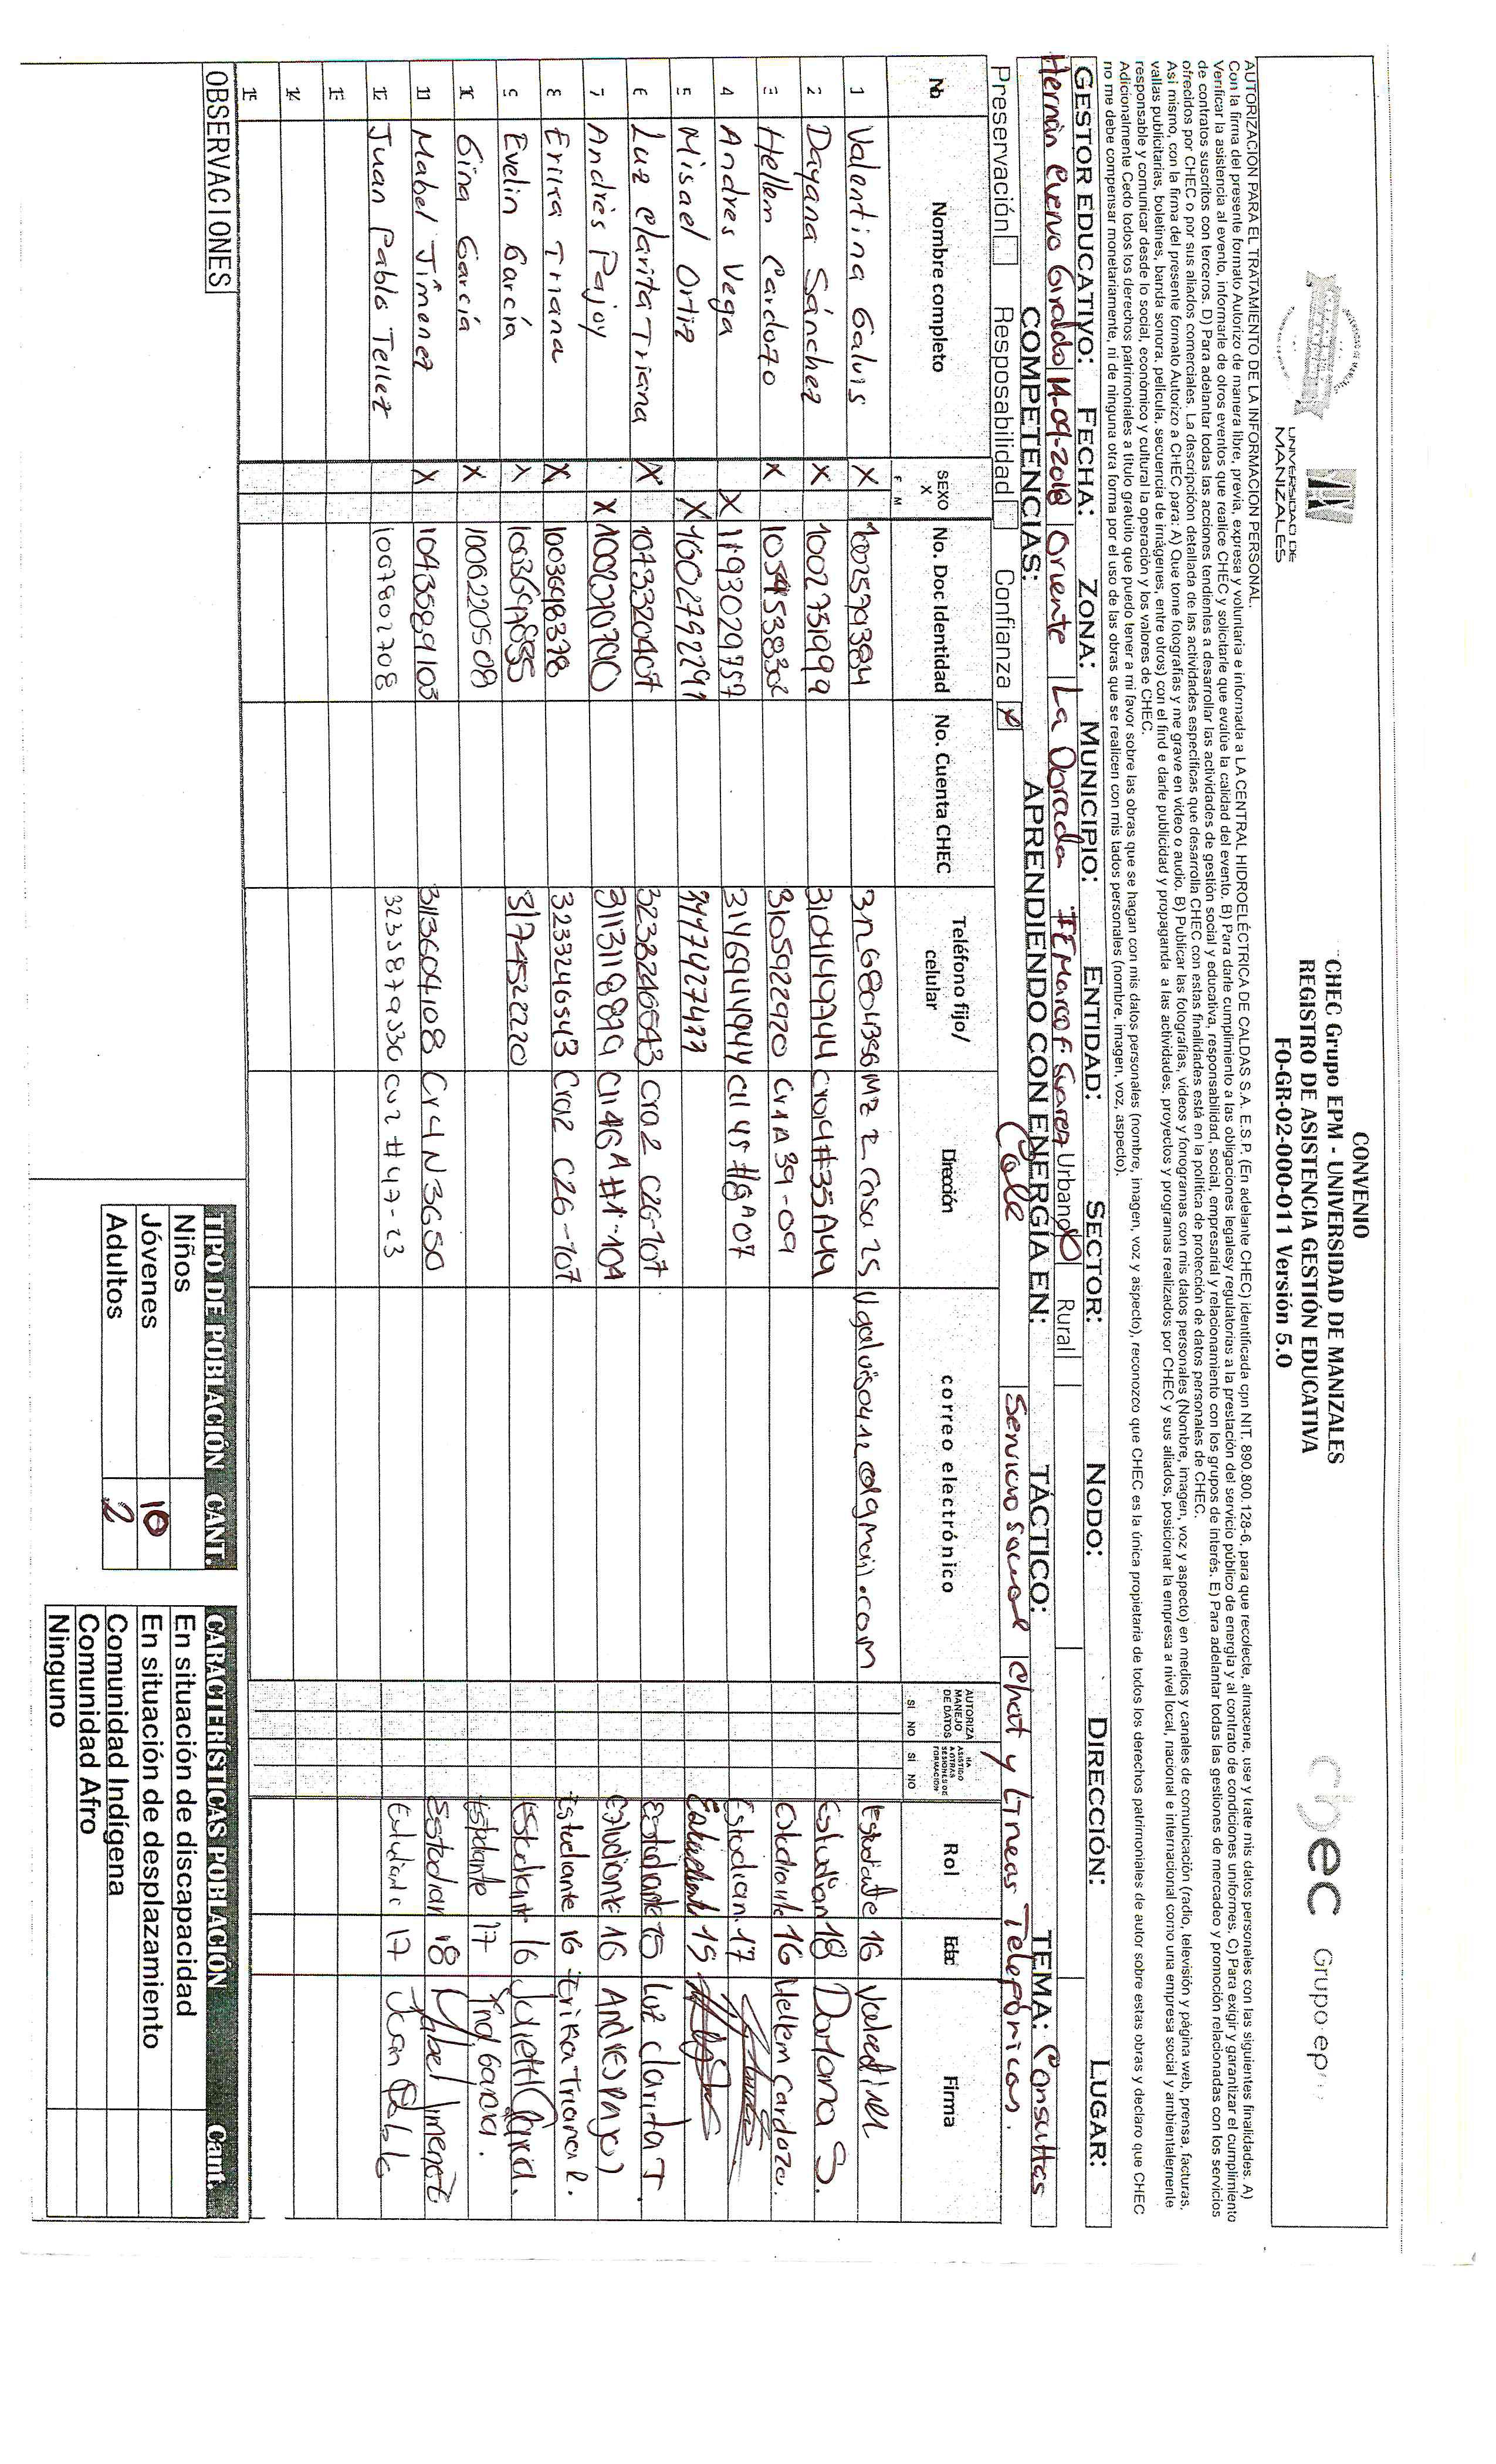 UNIVERSIDAD DE
MANIZALES
CONVENIO
CHEC Grupo EPM - UNIVERSIDAD DE MANIZALES
REGISTRO DE ASISTENCIA GESTIÓN EDUCATIVA
FO-GR-02-000-011 Versión 5.0
chec Grupo epm
AUTORIZACION PARA EL TRATAMIENTO DE LA INFORMACION PERSONAL.
Con la firma del presente formato Autorizo de manera libre, previa, expresa y voluntaria e informada a LA CENTRAL HIDROELÉCTRICA DE CALDAS S.A. E.S.P. (En adelante CHEC) identificada cpn NIT. 890.800.128-6, para que recolecte, almacene, use y trate mis datos personales con las siguientes finalidades. A)
Verificar la asistencia al evento, informarle de otros eventos que realice CHEC y solicitarle que evalúe la calidad del evento. B) Para darle cumplimiento a las obligaciones legalesy regulatorias a la prestación del servicio público de energía y al contrato de condiciones uniformes. C) Para exigir y garantizar el cumplimiento
de contratos suscritos con terceros. D) Para adelantar todas las acciones tendientes a desarrollar las actividades de gestión social y educativa, responsabilidad, social, empresarial y relacionamiento con los grupos de interés. E) Para adelantar todas las gestiones de mercadeo y promoción relacionadas con los servicios
ofrecidos por CHEC o por sus aliados comerciales. La descripcióon detallada de las actividades especificas que desarrolla CHEC con estas finalidades está en la politica de protección de datos personales de CHEC.
Asi mismo, con la firma del presente formato Autorizo a CHEC para: A) Que tome fotografías y me grave en video o audio. B) Publicar las fotografías, videos y fonogramas con mis datos personales (Nombre, imagen, voz y aspecto) en medios y canales de comunicación (radio, televisión y página web, prensa, facturas,
vallas publicitarias, boletines, banda sonora, pelicula, secuencia de imágenes, entre otros) con el find e darle publicidad y propaganda a las actividades, proyectos y programas realizados por CHEC y sus aliados, posicionar la empresa a nivel local, nacional e internacional como una empresa social y ambientalemente
responsable y comunicar desde lo social, económico y cultural la operación y los valores de CHEC.
Adicionalmente Cedo todos los derechos patrimoniales a titulo gratuito que puedo tener a mi favor sobre las obras que se hagan con mis datos personales (nombre, imagen, voz y aspecto), reconozco que CHEC es la única propietaria de todos los derechos patrimoniales de autor sobre estas obras y declaro que CHEC
no me debe compensar monetariamente, ni de ninguna otra forma por el uso de las obras que se realicen con mis tados personales (nombre, imagen, voz, aspecto).
GESTOR EDUCATIVO: FECHA: ZONA: MUNICIPIO: ENTIDAD: SECTOR: NODO: DIRECCIÓN: LUGAR:
Hernán Cuervo Giraldo 14-09-2018 Oriente La Dorada IE Marco F. Suarez Urbano X Rural
COMPETENCIAS: APRENDIENDO CON ENERGÍA EN: TÁCTICO: TEMA: Consultas
Preservación Resposabilidad Confianza X Cole Servicio Social Chat y Líneas Telefónicas.
No Nombre completo SEXO X F M No. Doc Identidad No. Cuenta CHEC Teléfono fijo/ celular Dirección correo electrónico AUTORIZA MANEJO DE DATOS SI NO HA ASISTIDO A OTRAS SESIONES DE FORMACION SI NO Rol Edad Firma
1 Valentina Galvis X 1002579384 3126804396 MZ 2 Casa 25 Vgalvis0412@gmail.com Estudiante 16
2 Dayana Sánchez X 1002751999 3104149744 Cra14#35A49 Estudian 18 Dayana S.
3 Hellem Cardozo X 1054538302 3105922920 Cr1A 39-09 Estudiante 16 Hellem Cardozo.
4 Andres Vega X 1193029757 3146944944 Cll 45 #8A07 Estudian. 17
5 Misael Ortiz X 1002792291 Estudiante 15
6 Luz Clarita Triana X 1073320407 3233246543 Cra2 C26-107 Estudiante 15 Luz Clarita T.
7 Andrés Pajoy X 1002970790 3113118879 Cll 46A #1-109 Estudiante 16 Andres Pajoy
8 Erika Triana X 1003698378 3233246543 Cra2 C26-107 Estudiante 16 Erika Triana R.
9 Evelin García X 3174522220 Estudiante 16 Juliett Garcia.
10 Gina García X 1006220508 Estudiante 17 Garcia.
11 Mabel Jímenez X 1043589103 3113604108 Cr4 N 3650 Estudian 18 Mabel Jimenez
12 Juan Pablo Tellez 1007802708 3233879330 Cr2 #47-23 Estudiante 17 Juan Pablo
13
14
15
OBSERVACIONES
TIPO DE POBLACIÓN CANT.
Niños
Jóvenes 10
Adultos 2
CARACTERÍSTICAS POBLACIÓN Cant.
En situación de discapacidad
En situación de desplazamiento
Comunidad Indígena
Comunidad Afro
Ninguno